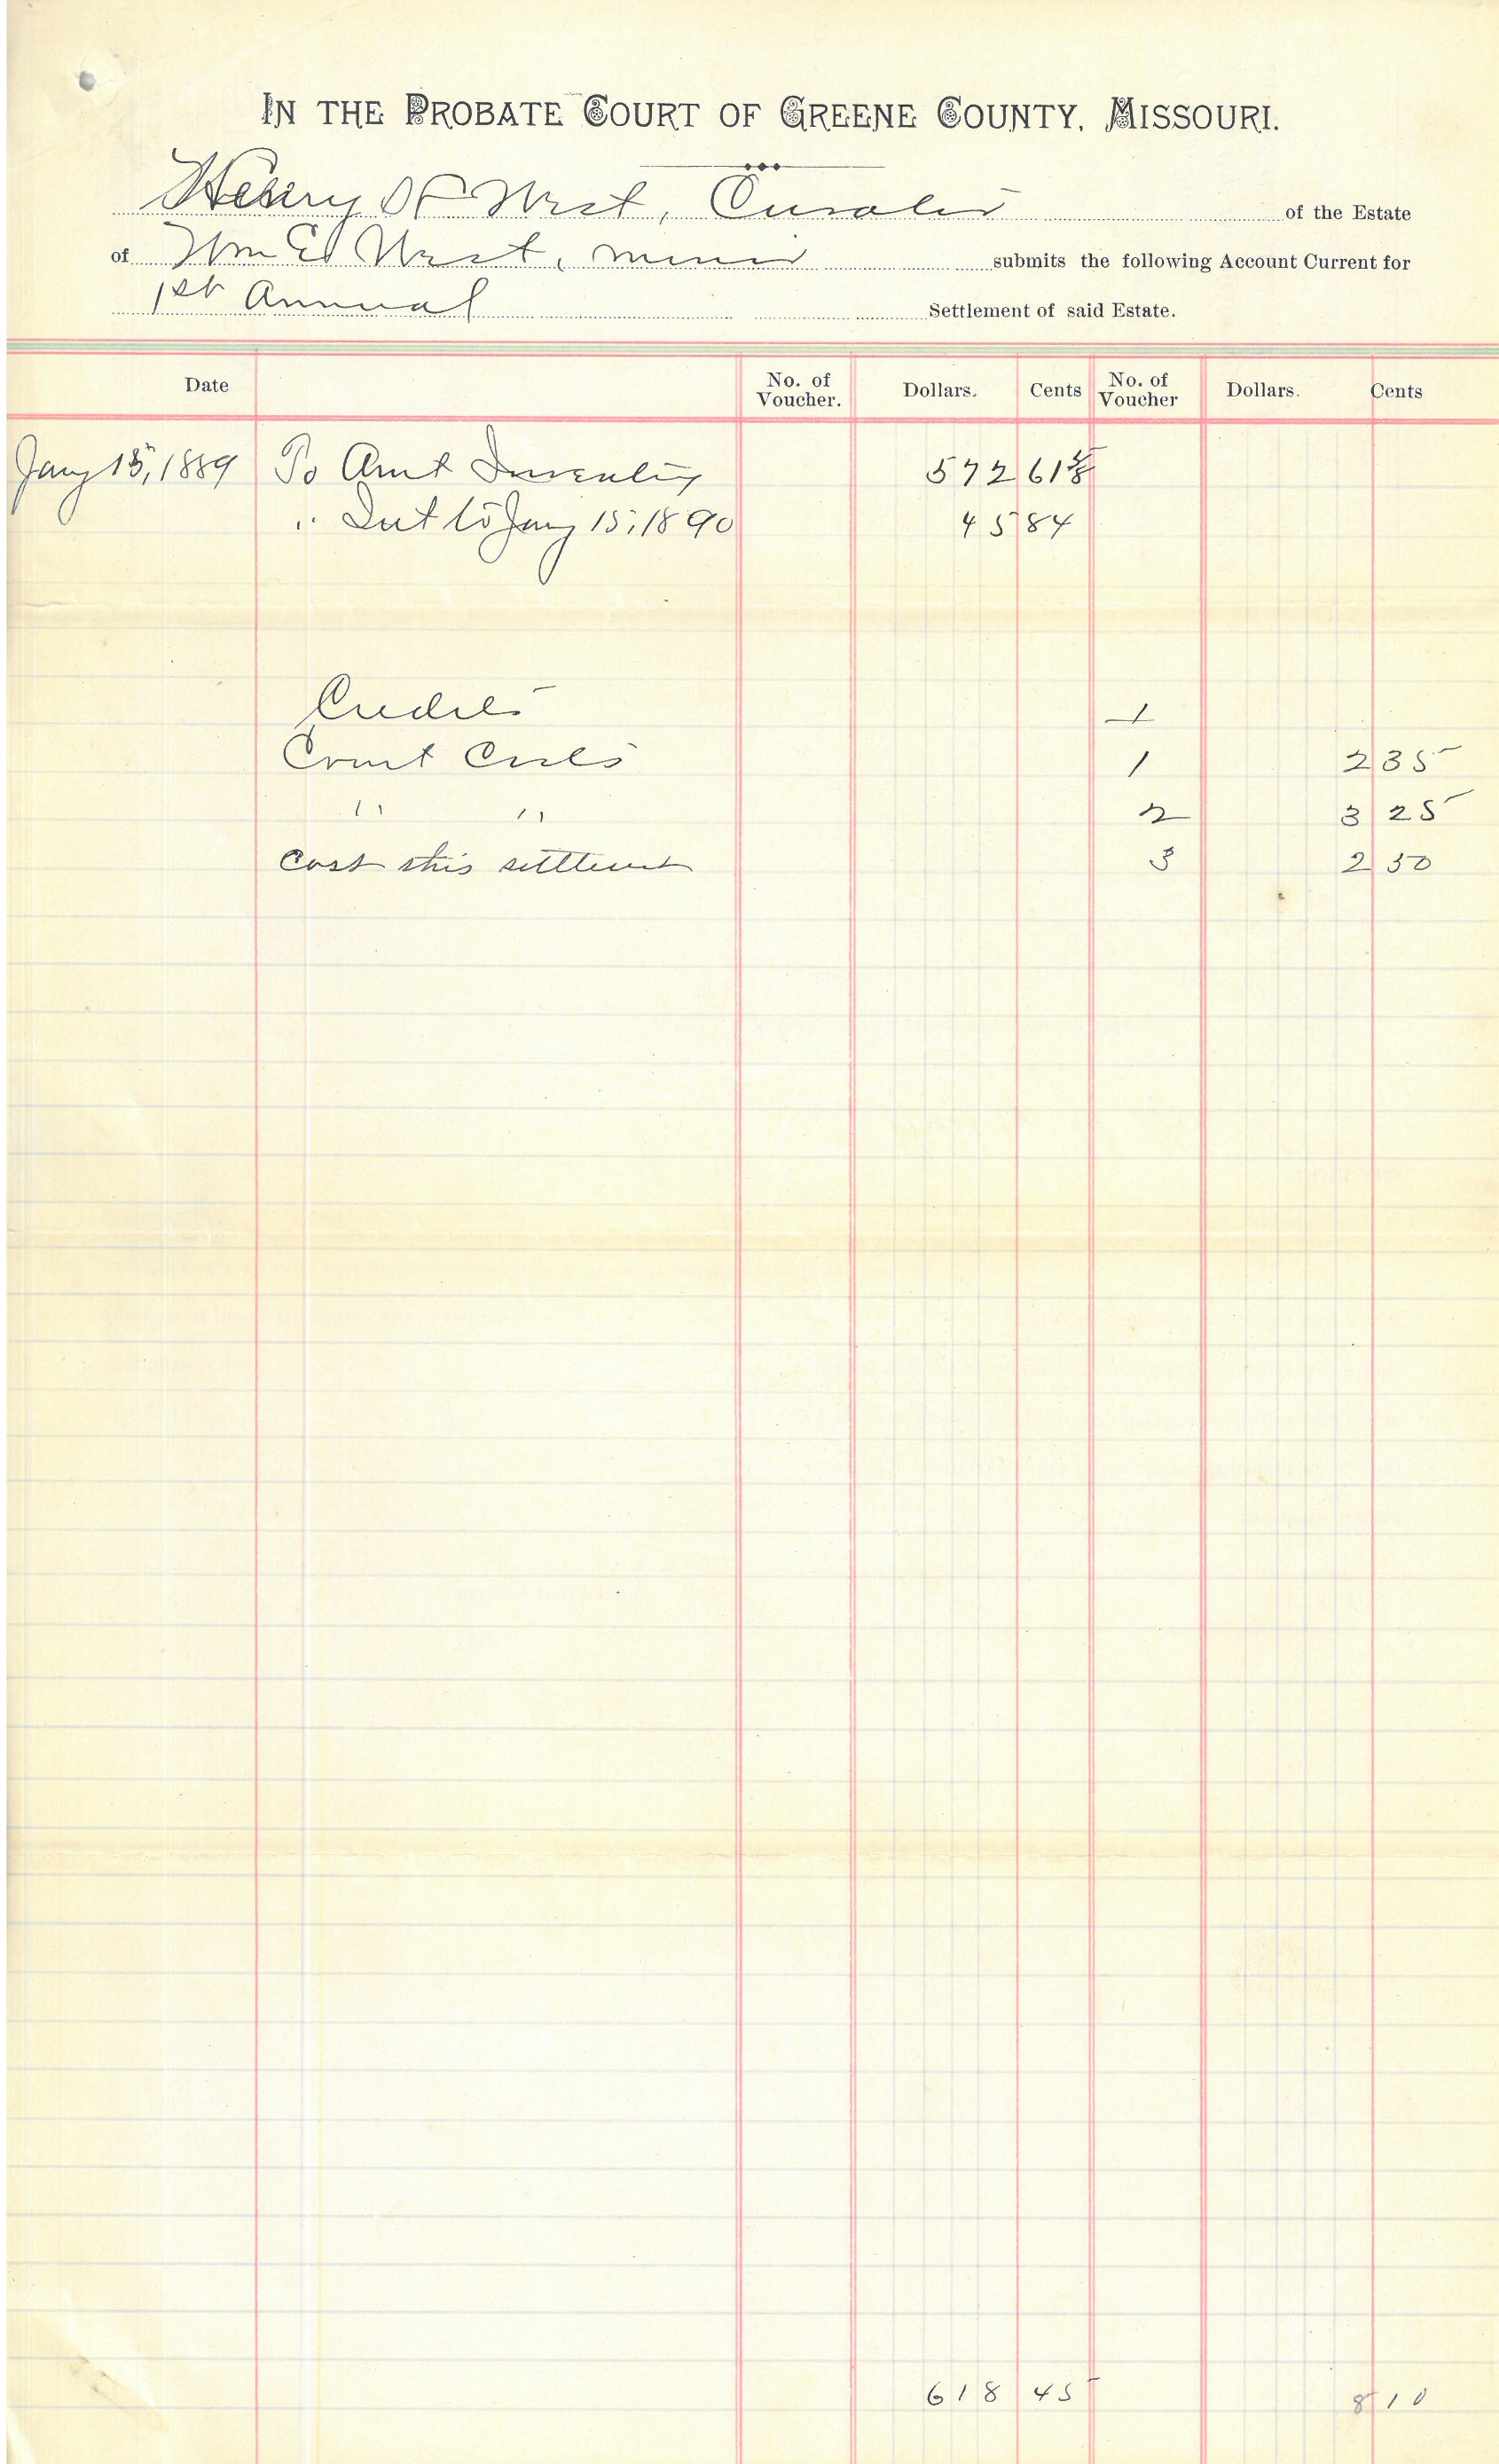 IN THE PROBATE COURT OF GREENE COUNTY, MISSOURI.
Henry H West, Curator of the Estate
of Wm Ed West, minor submits the following Account Current for
1st Annual Settlement of said Estate.
Date No. of Voucher. Dollars. Cents No. of Voucher Dollars. Cents
Jany 15, 1889 To Amt Inventory 572 61
" Int to Jany 15, 1890 45 84
Credits 1
Court Costs 1 2 35
" " 2 3 25
Cost this settlement 3 2 50
618 45 8 10